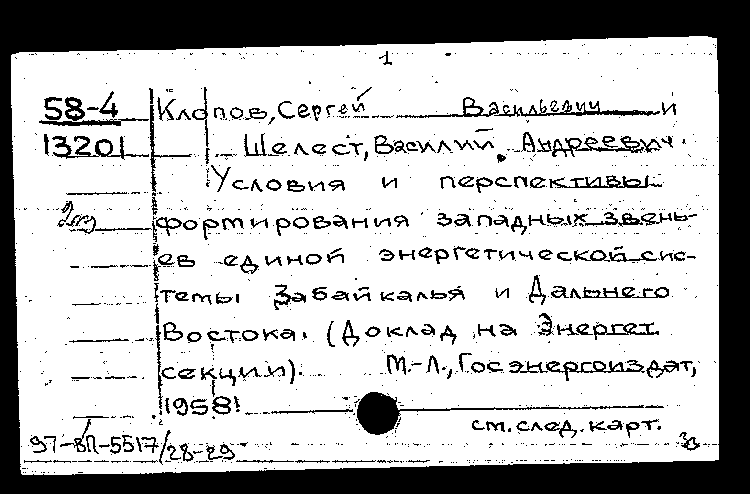 1
58-4 Клопов, Сергей Васильевич и
13201 Шелест, Василий Андреевич.
Условия и перспективы
формирования западных звень-
ев единой энергетической сис-
темы Забайкалья и Дальнего
Востока. (Доклад на Энергет.
секции). М.-Л., Госэнергоиздат,
1958!
см. след. карт.
97-8П-5517/28-29